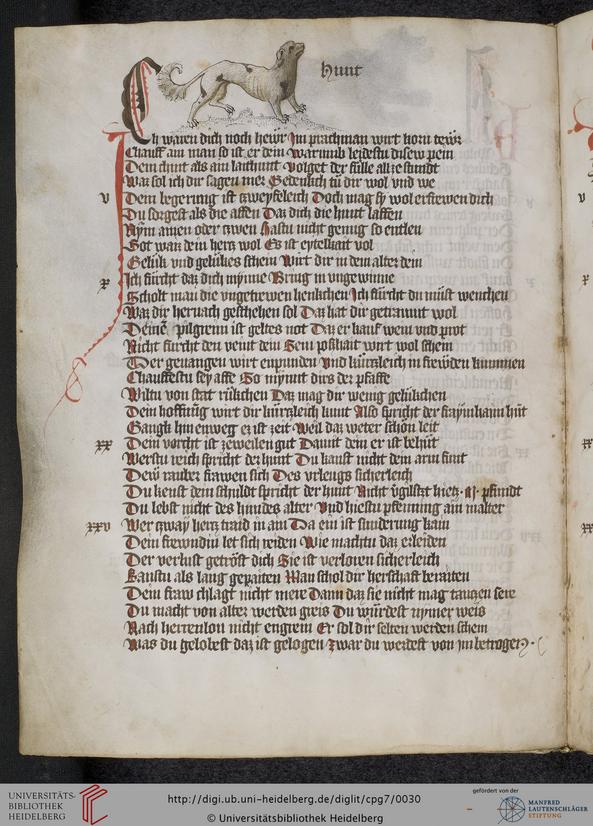 hunt
Ch waien dich noch hewr Im prachman wirt korn tewr
Chauff ain man so ist er dein Warumb leidestu disew pein
Dem hunt als ain laichunt Volget der fülle allze stundt
Waz sol ich dir sagen mer Gedenkch tu dir wol vnd we
v Dein begerung ist tzweyfeleich Doch mag sy wol erfrewen dich
Du sorgest als die affen Daz dich die hunt laffen
Nym ainen oder tzwen Hastu nicht genug so entlen
Got waz dein hertz wol Es ist eytelkait vol
Gelük vnd gelükes schein Wirt dir in dem alter dein
x Ich fürcht daz dich mynne Bring in vngewinne
Scholt man die vngetrewen henkchen Ich fürcht du müst wenchen
Waz dir hernach geschehen sol Daz hat dir getraumt wol
Deinem pilgreim ist geltes not Daz er kauf wein vnd prot
Nicht fürcht den veint dein Sein poshait wirt wol schein
Der geuangen wirt enpunden Vnd kürtzleich in frewden kummen
Chauffestu sey asse So nymmt dirs der pfaffe
Wiltu von stat rükchen Daz mag dir wenig gelükchen
Dein hoffnung wirt dir kürtzleich kunt Also spricht der
Gangk hinenweg ez ist zeit Weil daz weter schön leit
xx Dein vorcht ist zeweilen gut Damit dem er ist behüt
Werstu reich spricht der hunt Du kanst nicht dein arm sint
Dew rauber frawen sich Des vrleugs sicherleich
Du kenst dein schuldt spricht der hunt Nicht
Du lebst nicht des hundes alter Vnd hiestu pfenning ain malter
xxv Wer tzway hertz traid in ain Da ein ist sunderung kain
Dein frewndin let sich reiden Wie machtu daz erleiden
Der verlust getröst dich Sie ist verloren sicherleich
Kanstu als lang gepaiten Man schol dir herschaft beraiten
Dein fraw chlagt nicht mere Dann daz sie nicht mag tantzen sere
Du macht von alter werden greis Du würdest nymer weis
Nach herrenlon nicht engrein Er sol dir selten werden schein
Was du gelobest daz ist gelogen Zwar du werdest von im betrogen
UNIVERSITÄTS-
BIBLIOTHEK
HEIDELBERG
http://digi.ub.uni-heidelberg.de/diglit/cpg7/0030
© Universitätsbibliothek Heidelberg
gefördert von der
MANFRED
LAUTENSCHLÄGER
STIFTUNG